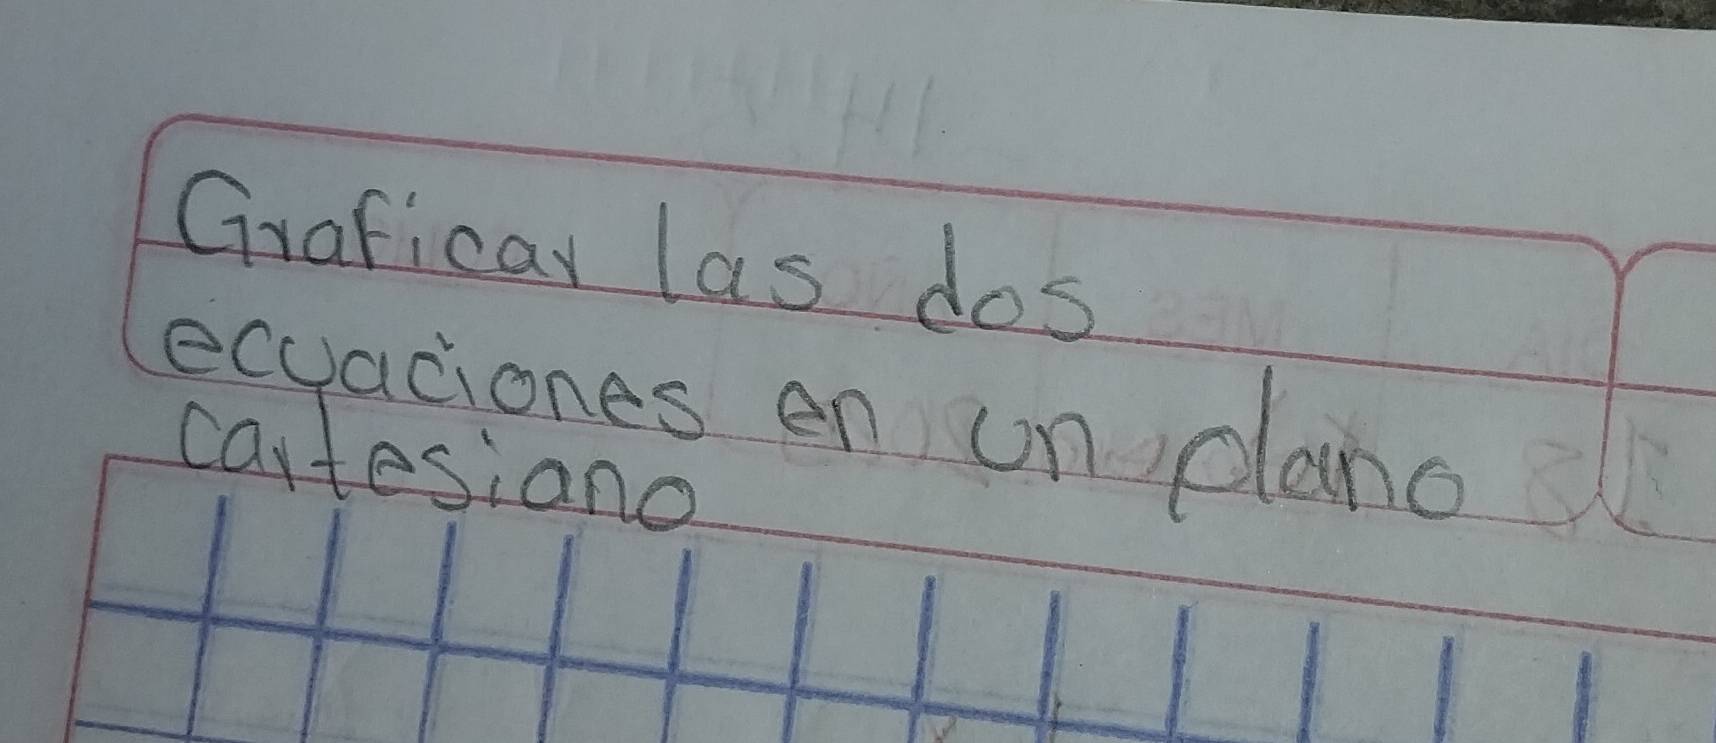 Graficar las dos
ecuaciones en un plano
cartesiano